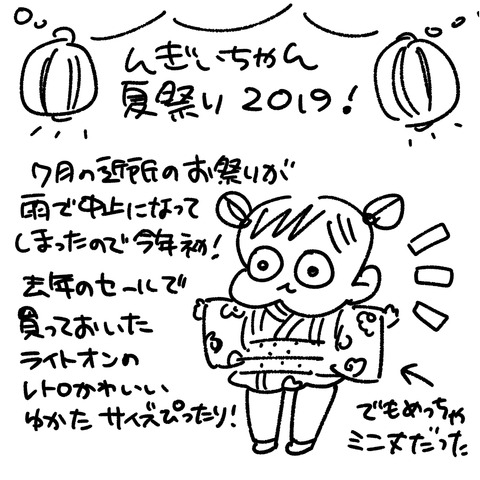 んぎぃちゃん
夏祭り 2019!
7月の近所のお祭りが
雨で中止になって
しまったので今年初!
去年のセールで
買っておいた
ライトオンの
レトロかわいい
ゆかた サイズぴったり!
でもめっちゃ
ミニ丈だった